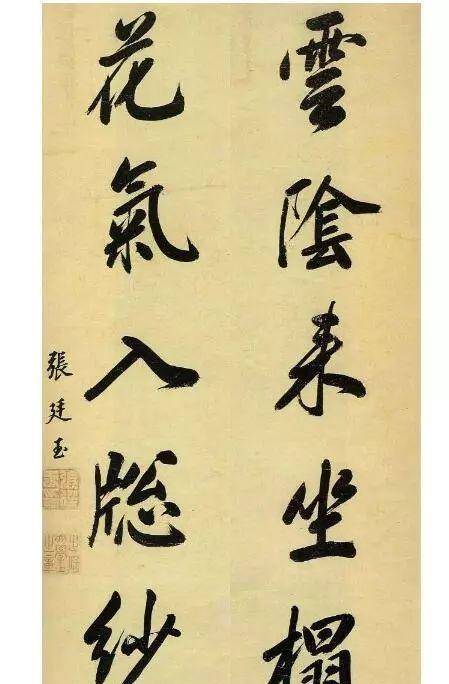 雲陰来坐榻
花氣入牎紗
張廷玉